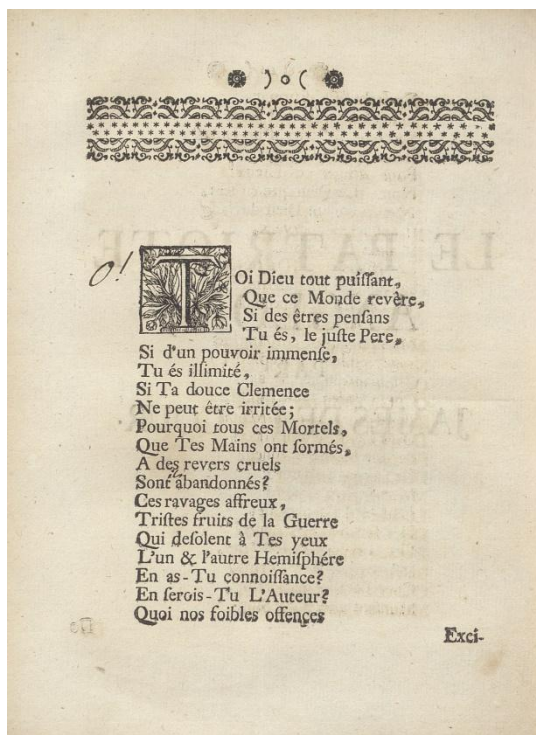 ) o (
O!
TOi Dieu tout puiſſant,
Que ce Monde revère,
Si des êtres penſans
Tu és, le juſte Pere,
Si d'un pouvoir immenſe,
Tu és illimité,
Si Ta douce Clemence
Ne peut être irritée;
Pourquoi tous ces Mortels,
Que Tes Mains ont formés,
A des revers cruels
Sont abandonnés?
Ces ravages affreux,
Triſtes fruits de la Guerre
Qui deſolent à Tes yeux
L'un & l'autre Hemiſphére
En as-Tu connoiſſance?
En ſerois-Tu L'Auteur?
Quoi nos foibles offences
Exci-